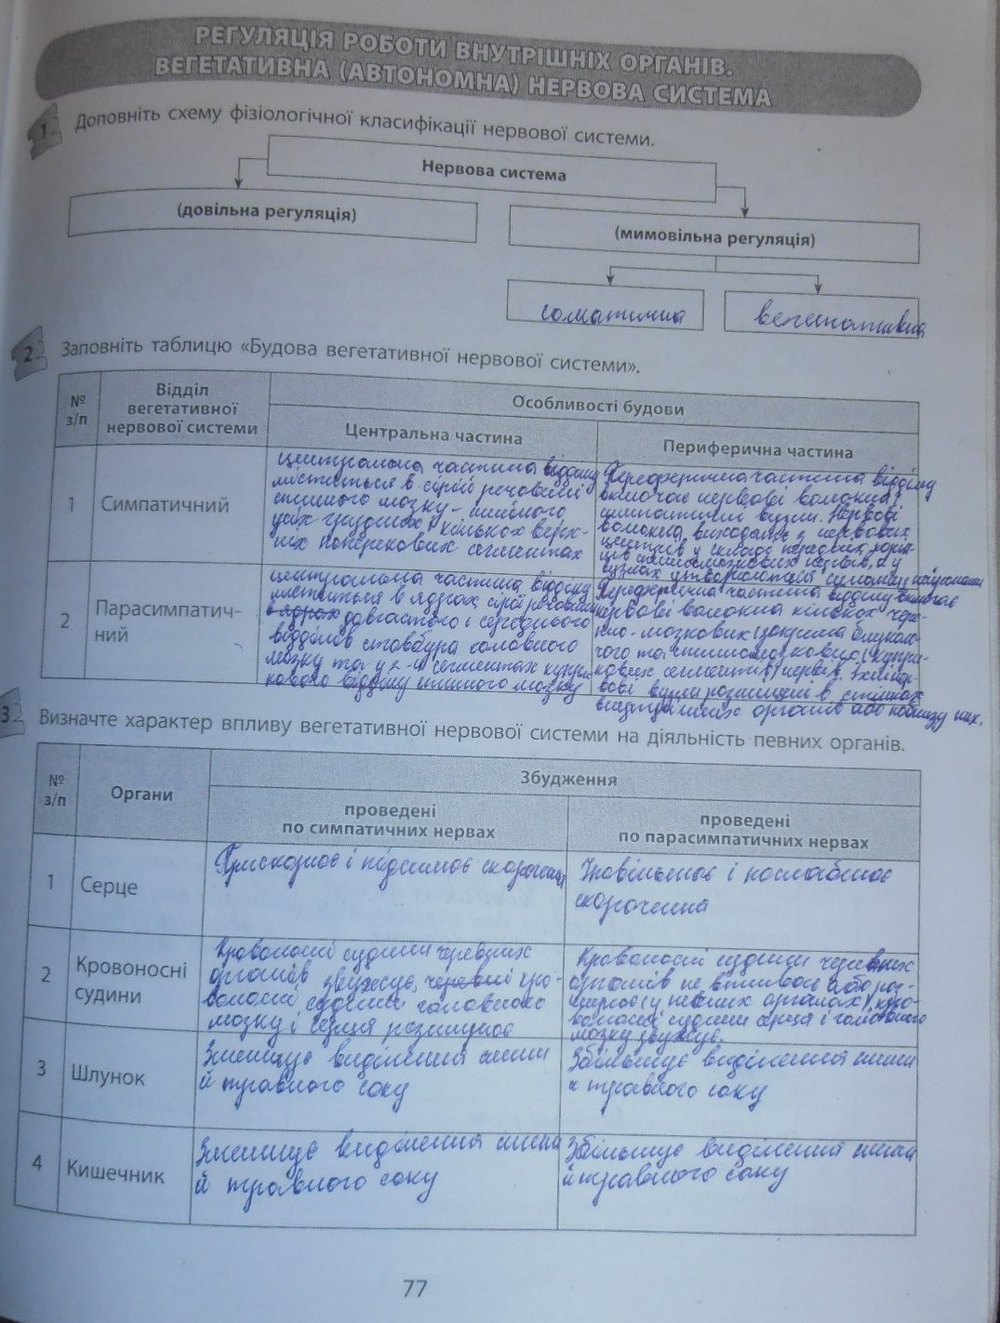 РЕГУЛЯЦІЯ РОБОТИ ВНУТРІШНІХ ОРГАНІВ.
ВЕГЕТАТИВНА (АВТОНОМНА) НЕРВОВА СИСТЕМА
1 Доповніть схему фізіологічної класифікації нервової системи.
Нервова система
(довільна регуляція)
(мимовільна регуляція)
соматична
вегетативна
2 Заповніть таблицю «Будова вегетативної нервової системи».
№ з/п
Відділ вегетативної нервової системи
Особливості будови
Центральна частина
Периферична частина
1
Симпатичний
центральна частина відділу
міститься в сірій речовині
спинного мозку - шийного
усіх грудних, кількох верх-
ніх поперекових сегментах
Переферична частина відділу
включає нервові волокна,
симпатичні вузли. Нервові
волокна виходять з нервових
центрів у складі передніх корін-
ців спинномозкових нервів, а у
вузлах утворюються
2
Парасимпатич-
ний
центральна частина відділу
міститься в ядрах сірої речовини
в ядрах довгастого і середнього
відділів стовбура головного
мозку та у 2-4 сегментах крижового
відділу спинного мозку
Переферична частина відділу включає
нервові волокна кількох чере-
пно-мозкових (зокрема блукаю-
чого та спинномозкових (крижо-
нервів.
вові вузли розміщені в стінках
внутрішніх органів або поблизу них.
3 Визначте характер впливу вегетативної нервової системи на діяльність певних органів.
№ з/п
Органи
Збудження
проведені
по симпатичних нервах
проведені
по парасимпатичних нервах
1
Серце
Прискорює і підсилює скорочення
Уповільнює і послаблює
скорочення
2
Кровоносні
судини
Кровоносні судини черевних
органів звужує, черевні кро-
воносні судини головного
мозку і серця розширює
Кровоносні судини черевних
органів не впливає або роз-
ширює (у певних органах), кро-
воносні судини серця і головного
мозку звужує.
3
Шлунок
Зменшує виділення слини
й травного соку
Збільшує виділення слини
й травного соку
4
Кишечник
Зменшує виділення слини
й травного соку
Збільшує виділення слини
й травного соку
77